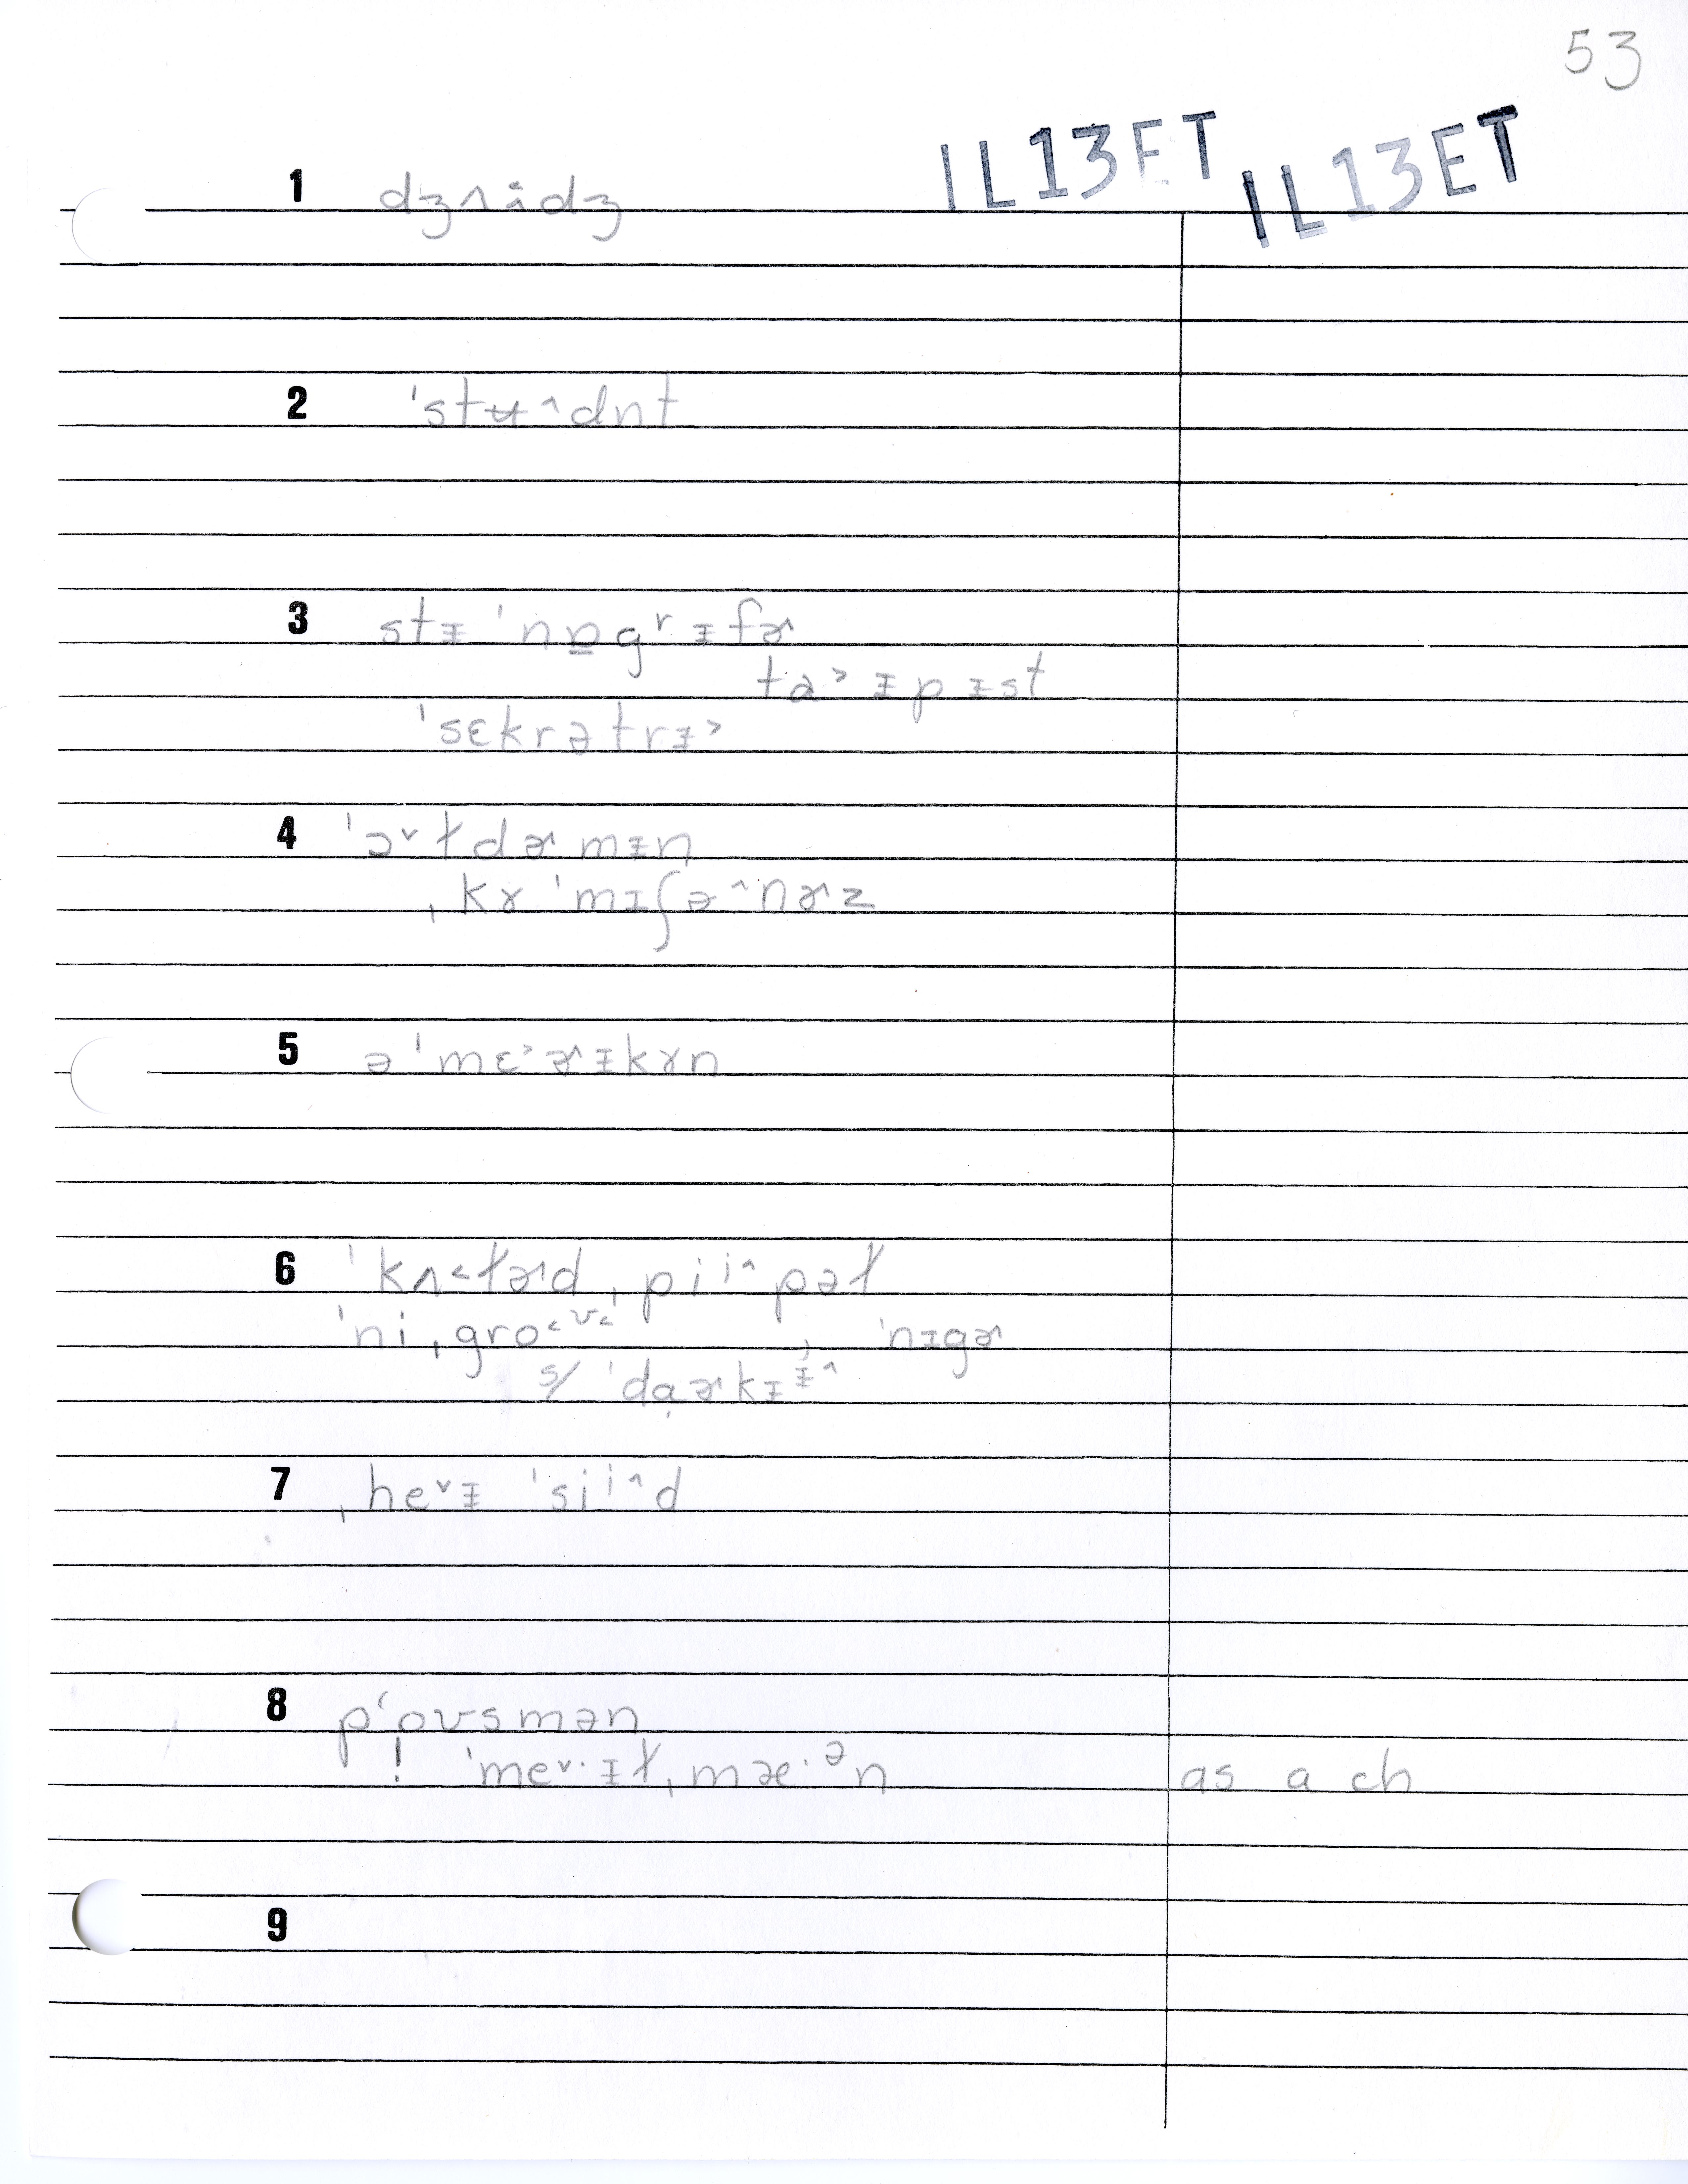 53
IL13ET IL13ET
1 dʒʌɨdʒ
2 ˈstʉ^dnt
3 stᵻ ˈnɒgʳᵻfɚ
ta˃ᵻpᵻst
ˈsɛkrətrᵻ˃
4 ˈɔ˅ɫdɚmᵻn
ˌkɤˈmɪʃə^nɚz
5 əˈmɛ˃ɚᵻkɤn
6 ˈkʌ˂ɫɚd ˌpiⁱ^pəɫ
ˈniˌgro˂ᶷ˂, ˈnɪgɚ
s/ ˈdɑ̣ɚkɪᵻ^
7 ˌhe˅ᵻ ˈsiⁱ^d
8 pʻoʊsmən
! ˈme˅·ᵻɫˌmæ·ᵊn as a ch
9